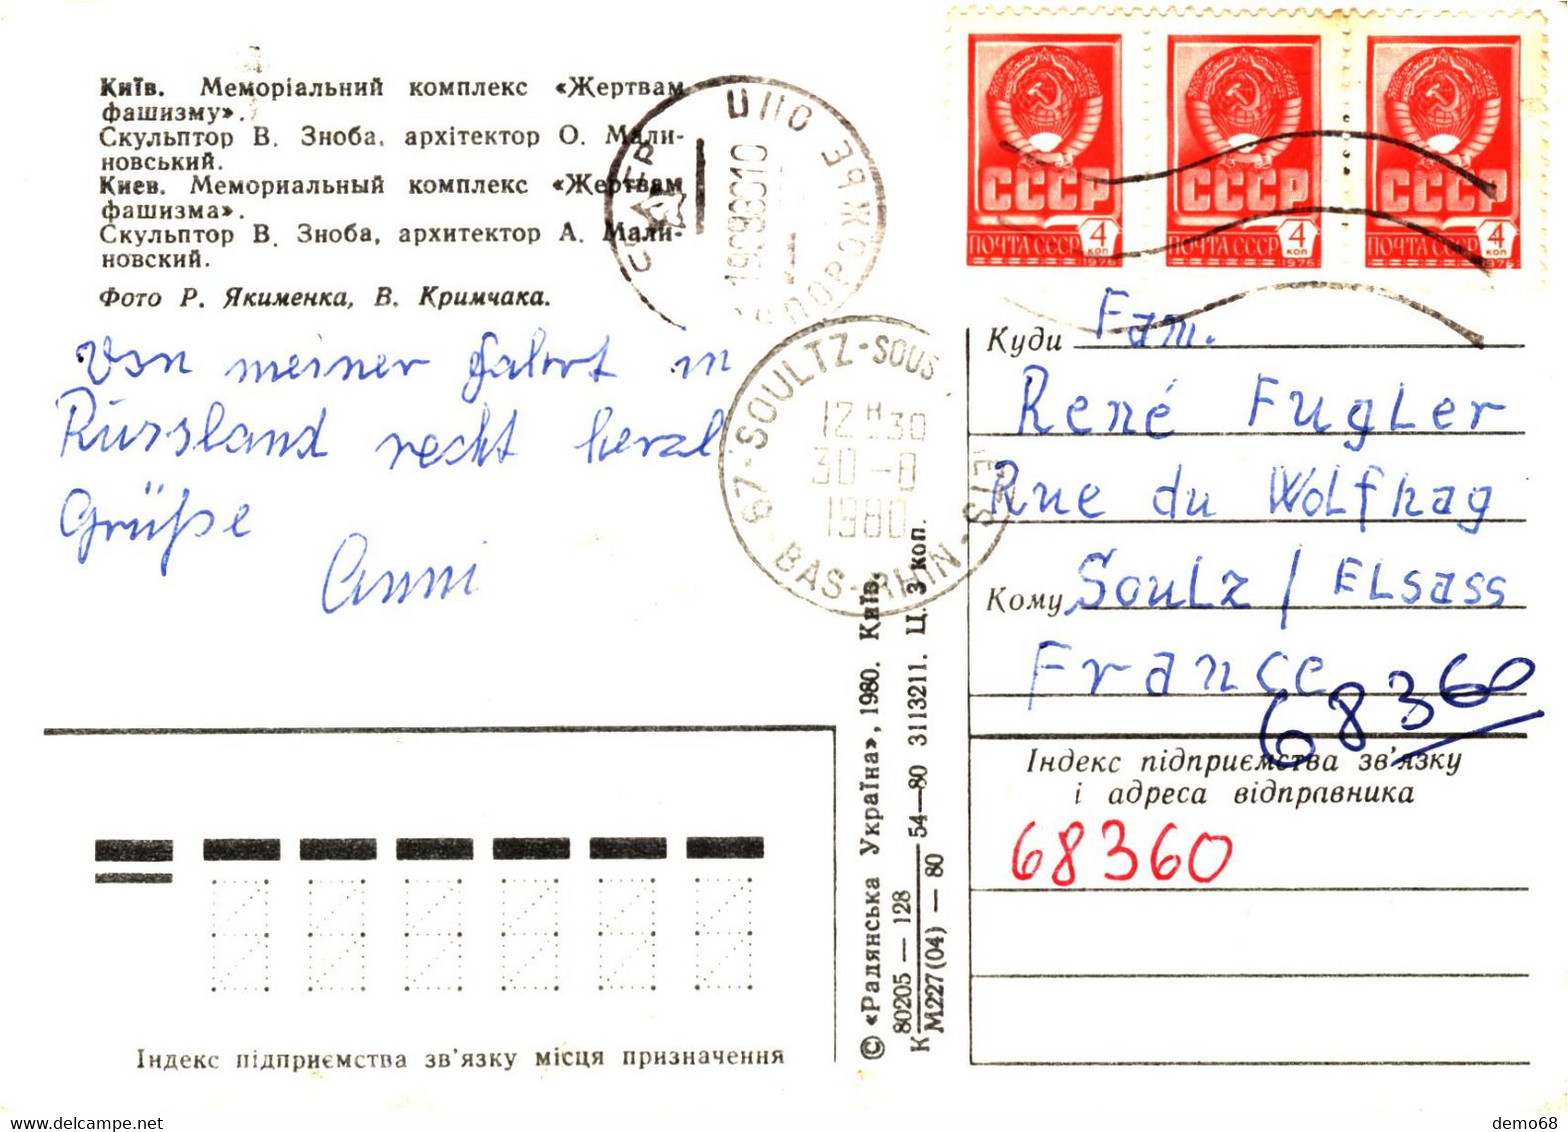 Київ. Меморіальний комплекс «Жертвам
фашизму».
Скульптор В. Зноба, архітектор О. Мали-
новський.
Киев. Мемориальный комплекс «Жертвам
фашизма».
Скульптор В. Зноба, архитектор А. Мали-
новский.
Фото Р. Якименка, В. Кримчака.
Von meiner Fahrt in
Russland recht herzl
Grüße
Anni
67-SOULTZ-SOUS
12H30
30-8
1980
BAS-RHIN
СССР
ПОЧТА СССР 4 КОП
1976
СССР
ПОЧТА СССР 4 КОП
1976
СССР
ПОЧТА СССР 4 КОП
1976
Куди Fam.
René Fugler
Rue du Wolfhag
Кому Soulz / Elsass
France
68360
Індекс підприємства зв'язку
і адреса відправника
68360
© «Радянська Україна», 1980. Київ.
К 80205 — 128 54—80 3113211. Ц. 3 коп.
М227(04) — 80
Індекс підприємства зв'язку місця призначення
demo68